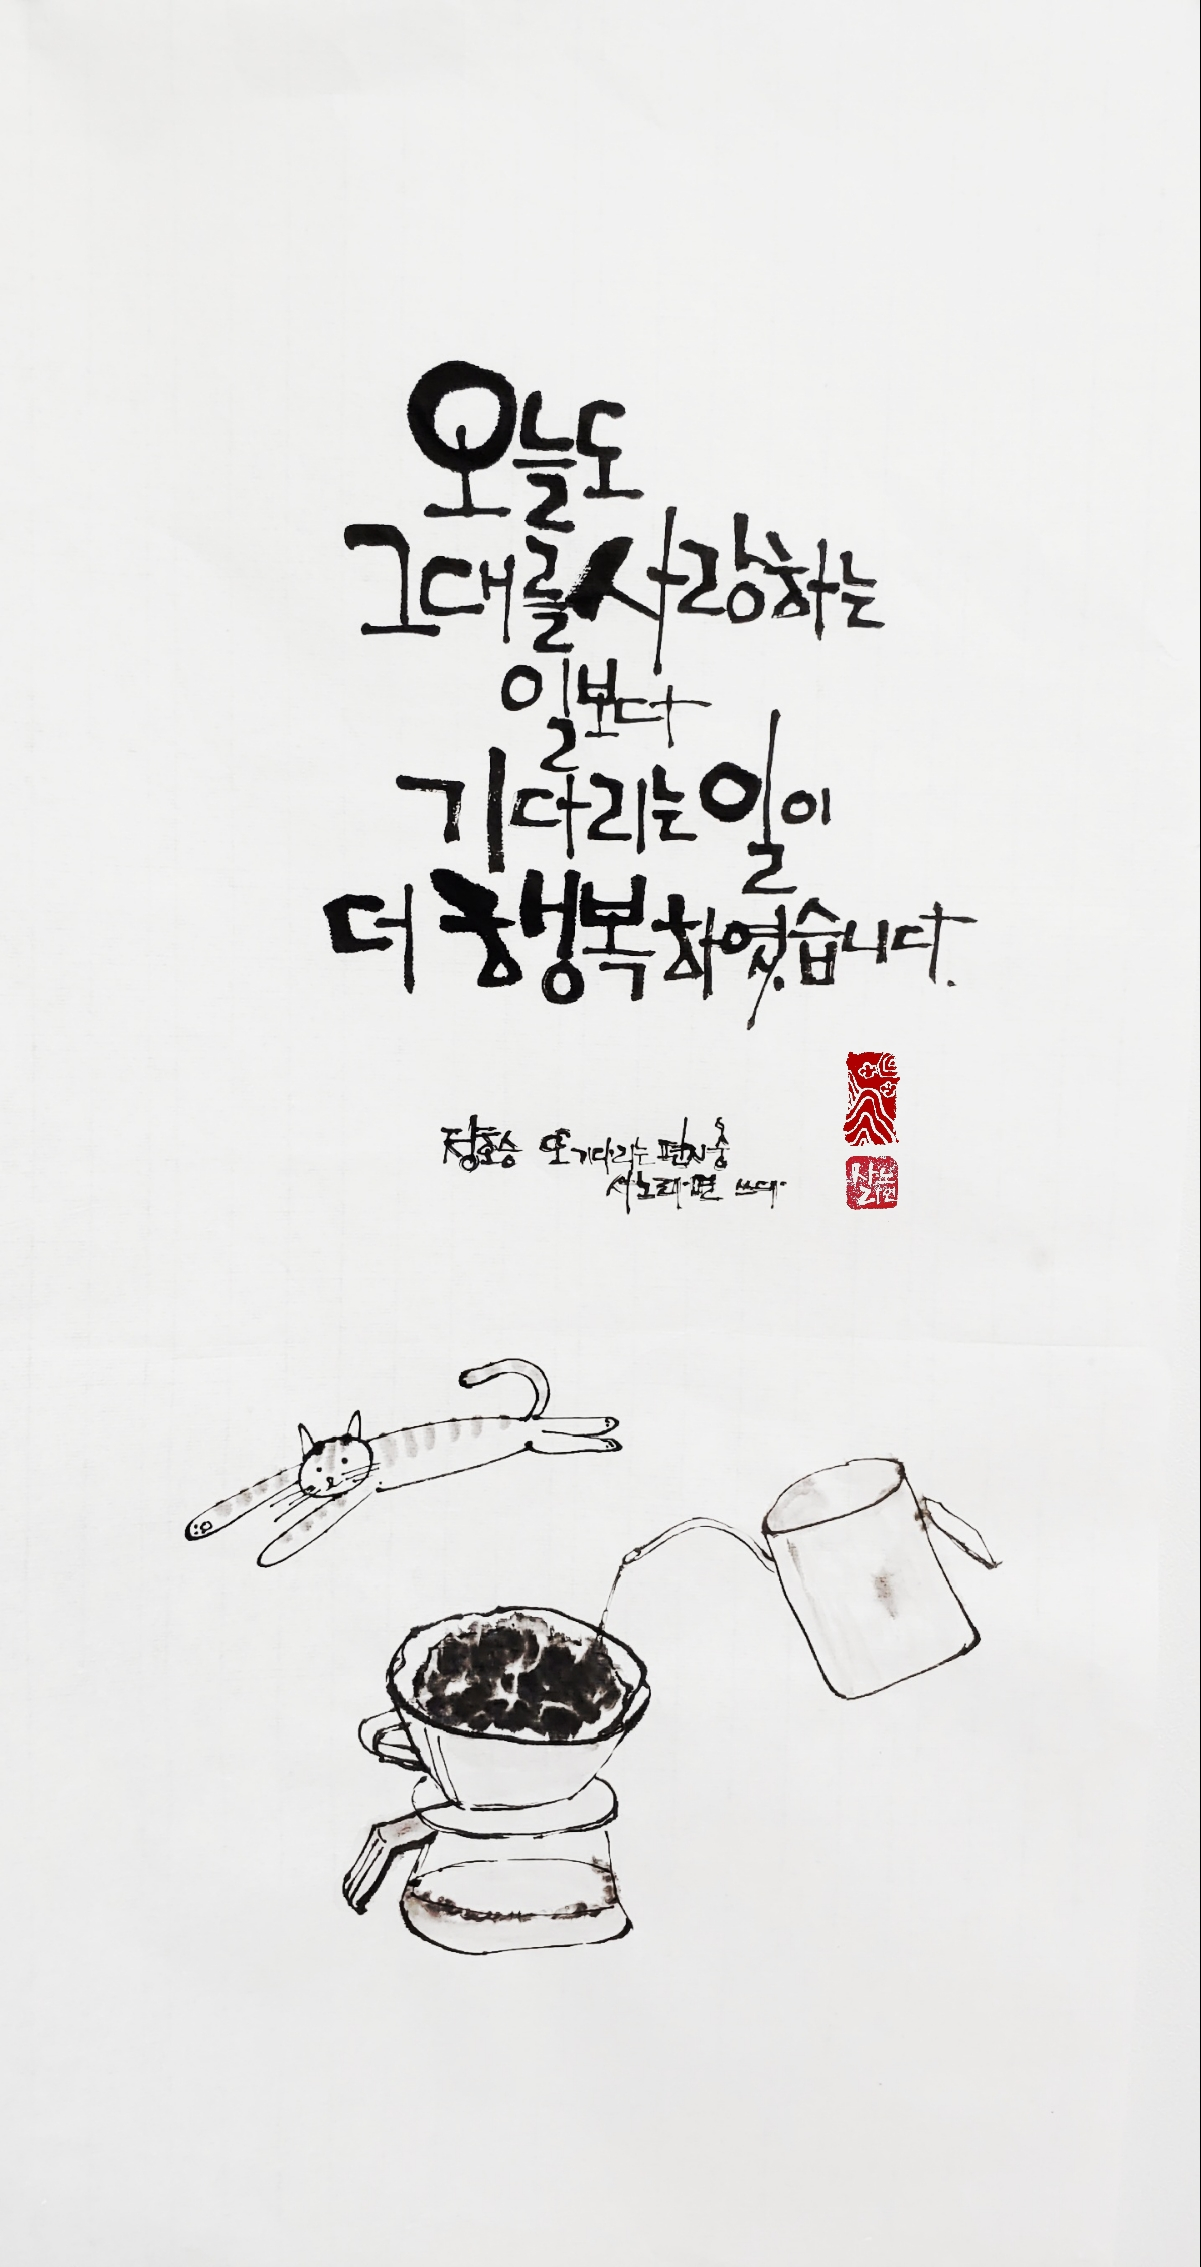 오늘도
그대를 사랑하는
일보다
기다리는 일이
더 행복하였습니다.
정호승 또 기다리는 편지 중
쓰다